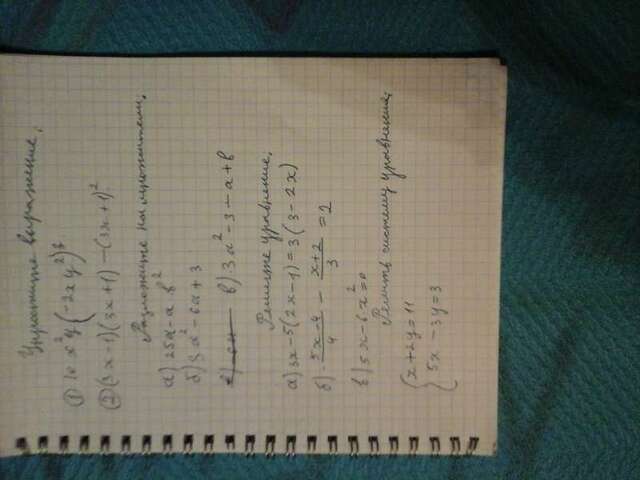 Упростите выражение.
① 10x²y(-2xy²)³
② (3x-1)(3x+1)-(3x+1)²
Разложите на множители.
а) 25a-ab²
б) 3a²-6a+3
в) 3a²-3-a+b
Решите уравнение.
а) 3x-5(2x-1)=3(3-2x)
б) (5x-4)/4 - (x+2)/3 = 2
в) 5x-6x²=0
Решить систему уравнения:
{ x+2y=11
5x-3y=3